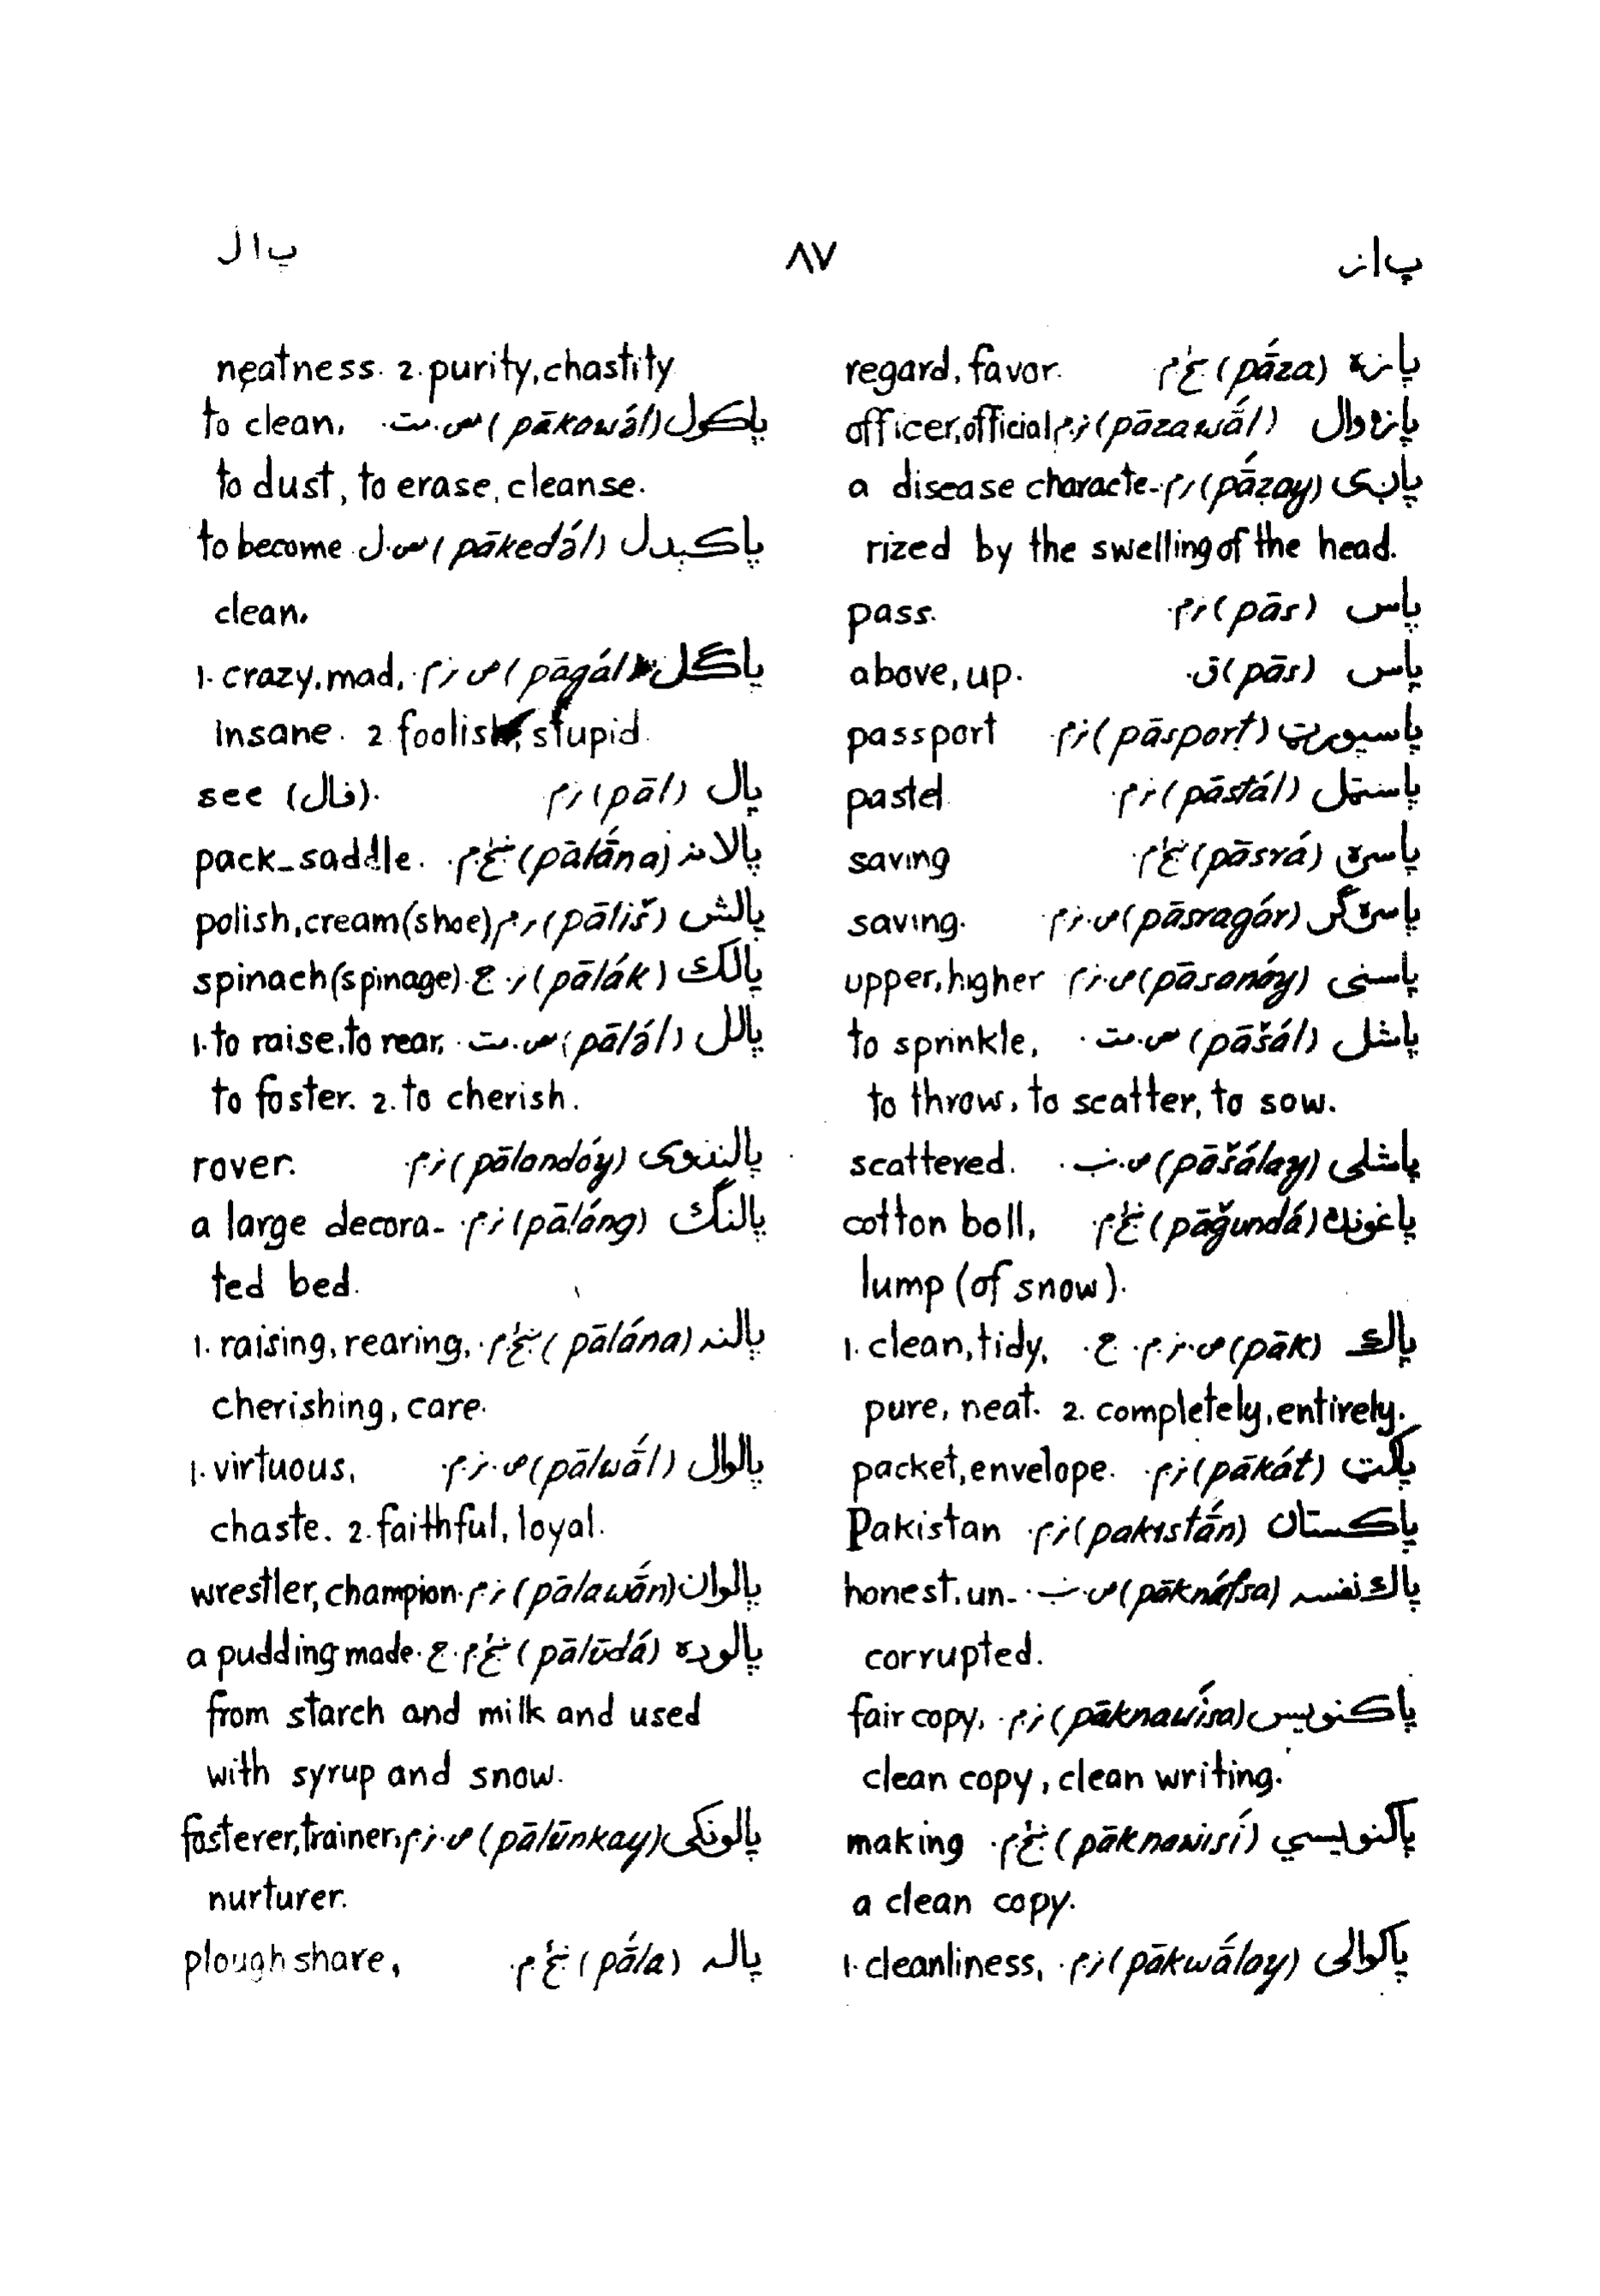 پ از ۸۷ پ ا ل
پازه (pā́za) ښځ.م. regard, favor.
پازوال (pāzawā́l) نر.م. officer, official
(pā́zay) نر.م. a disease characte-
rized by the swelling of the head.
پاس (pās) نر.م. pass.
پاس (pās) ق. above, up.
پاسپورټ (pāsporṭ) نر.م. passport
پاستل (pāstál) نر.م. pastel
پاسره (pāsrá) ښځ.م. saving
پاسره گر (pāsragár) ص.نر.م. saving.
پاسنی (pāsanáy) ص.نر.م. upper, higher
پاشل (pāšә́l) مص.مت. to sprinkle,
to throw, to scatter, to sow.
پاشلی (pāšә́lay) scattered.
پاغونده (pāğundá) ښځ.م. cotton boll,
lump (of snow).
پاك (pāk) ص.نر.م. ج. 1. clean, tidy,
pure, neat. 2. completely, entirely.
پاکټ (pākáṭ) نر.م. packet, envelope.
پاکستان (pakistā́n) نر.م. Pakistan
پاك نفسه (pāknáfsa) honest, un-
corrupted.
پاکنویس (pāknawísa) نر.م. fair copy,
clean copy, clean writing.
پاکنویسي (pāknawisí) ښځ.م. making
a clean copy.
پاکوالی (pākwā́lay) نر.م. 1. cleanliness,
neatness. 2. purity, chastity
پاکول (pākawә́l) مص.مت. to clean,
to dust, to erase, cleanse.
پاکېدل (pākedә́l) مص.ل. to become
clean.
پاگل (pāgál) ص نر.م. 1. crazy, mad,
insane. 2 foolish, stupid.
پال (pāl) نر.م. see (فال).
پالانه (pālā́na) ښځ.م. pack-saddle.
پالش (pāliš) نر.م. polish, cream (shoe)
پالك (pālák) نر. ج. spinach (spinage).
پالل (pālә́l) مص.مت. 1. to raise, to rear,
to foster. 2. to cherish.
پالندوی (pālandóy) نر.م. rover.
پالنگ (pāláng) نر.م. a large decora-
ted bed.
پالنه (pālә́na) ښځ.م. 1. raising, rearing,
cherishing, care.
پالوال (pālwā́l) ص.نر.م. 1. virtuous,
chaste. 2. faithful, loyal.
پالوان (pālawā́n) نر.م. wrestler, champion.
پالوده (pālūdá) ښځ.م. ج. a pudding made
from starch and milk and used
with syrup and snow.
پالونکی (pālū́nkay) ص.نر.م. fosterer, trainer,
nurturer.
پاله (pā́la) ښځ.م. plough share,